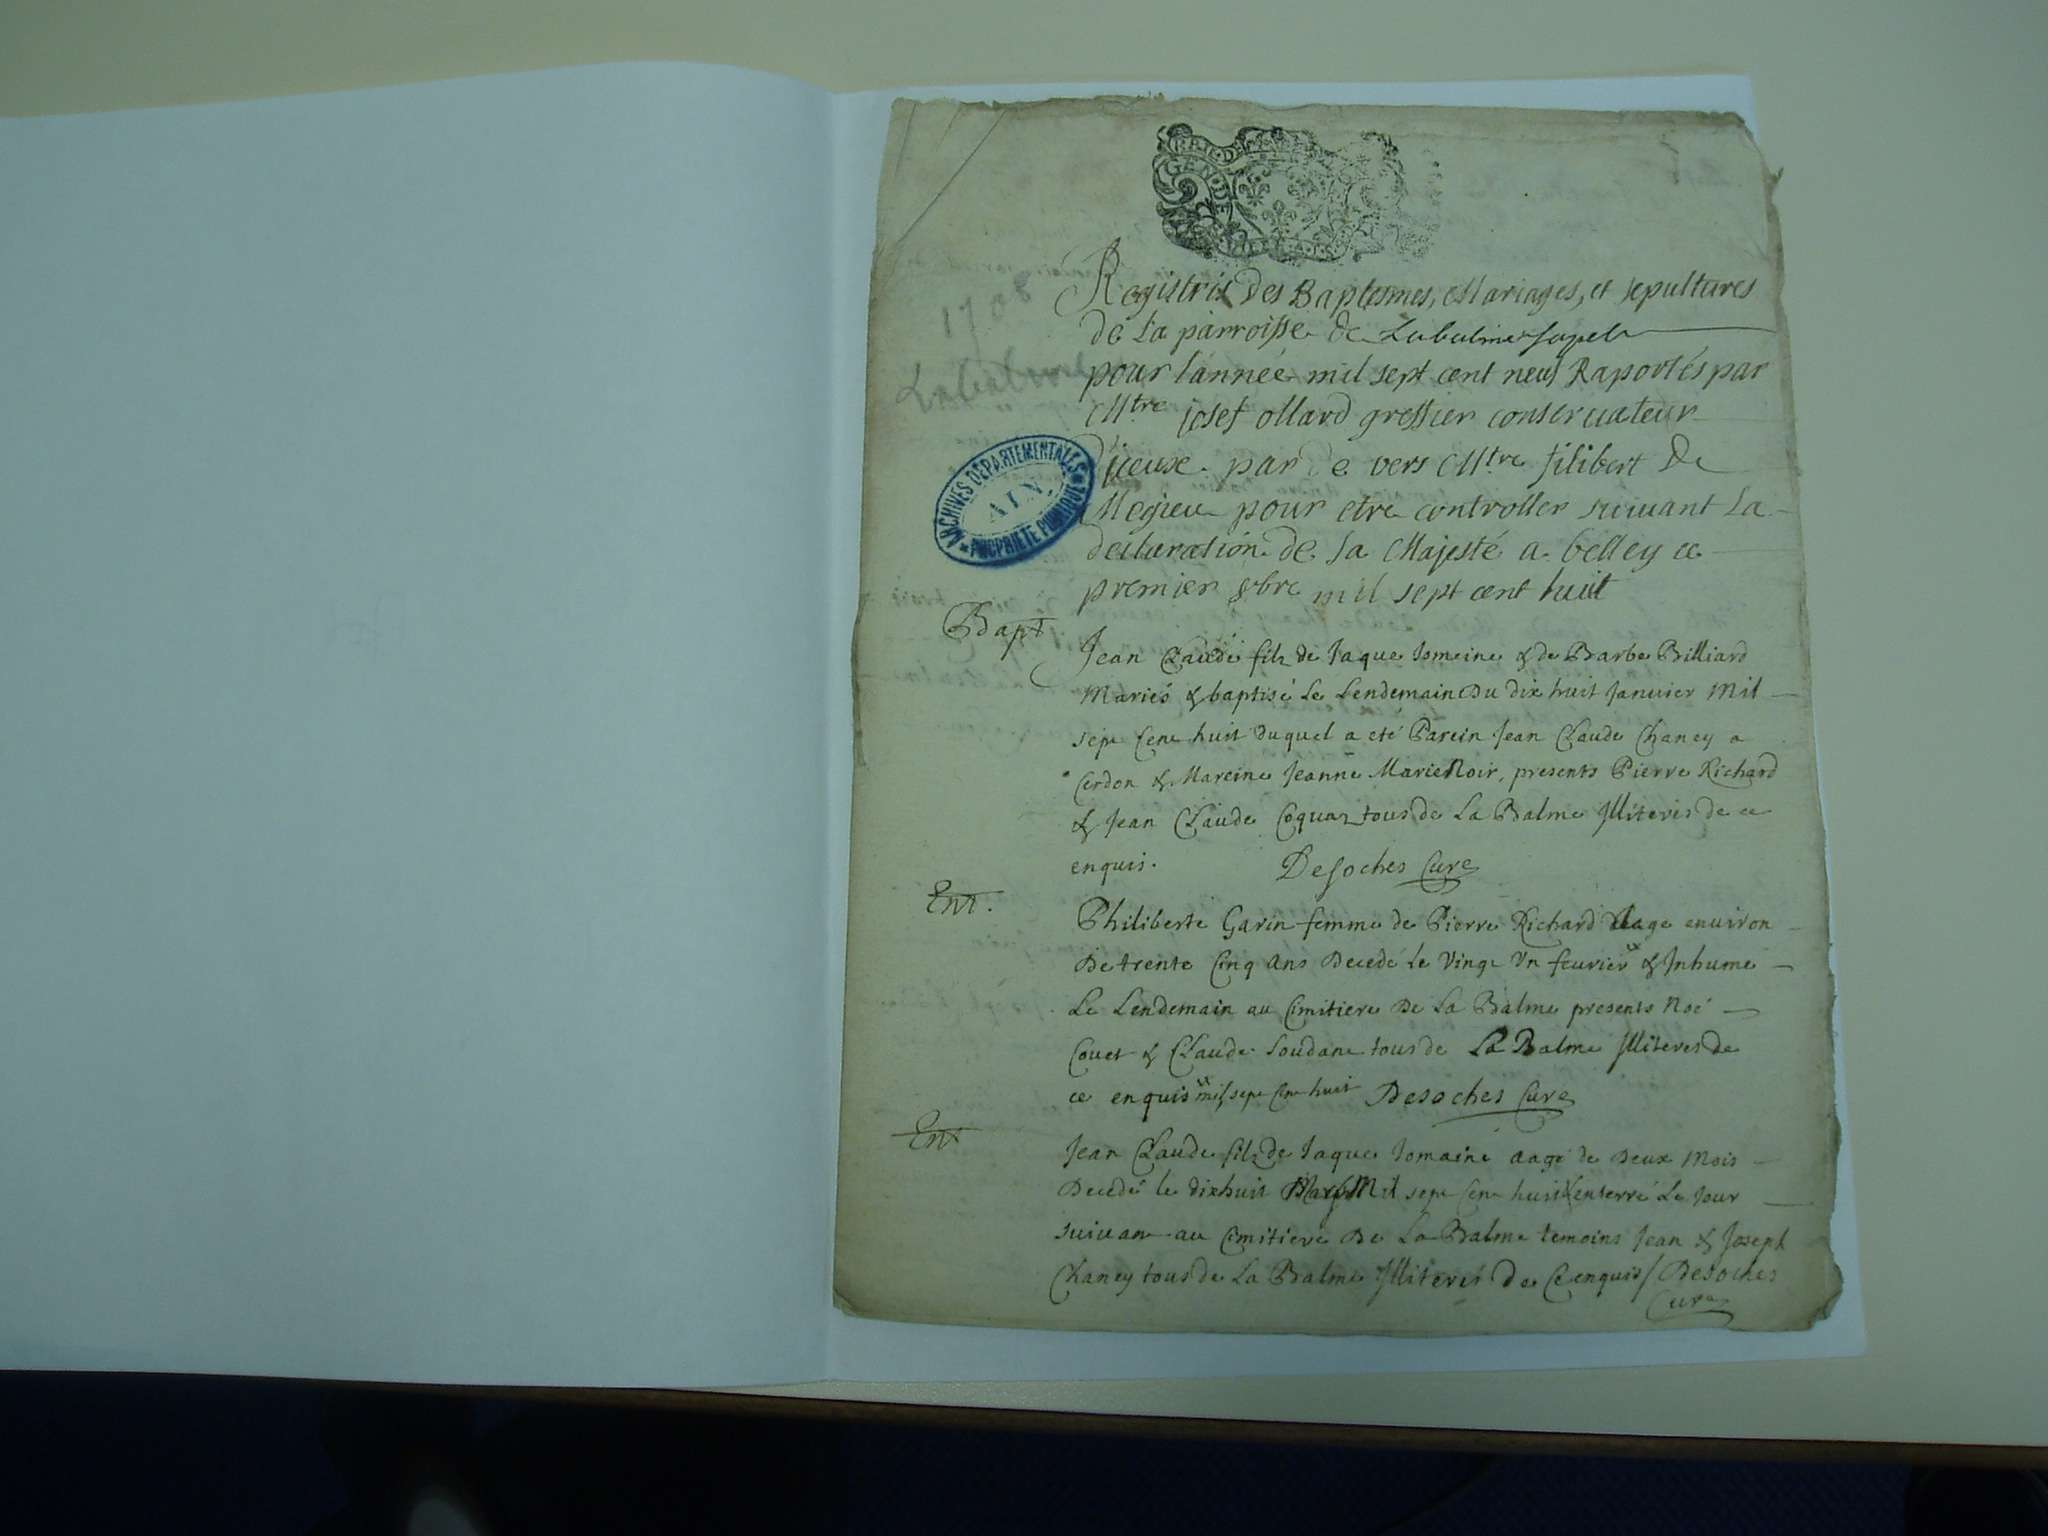 GEN. DE
Registre des Baptesmes, Mariages, et sepultures
de la parroisse de Labalme sapel
pour l'année mil sept cent neuf Raportés par
Mtre josef ollard greffier conservateur
d'iceux par de vers Mtre filibert de
Megieu pour etre controller suivant la
declaration de sa Majesté a belley ce
premier 8bre mil sept cent huit
1708
Labalme
ARCHIVES DÉPARTEMENTALES
AIN
PROPRIÉTÉ PUBLIQUE
Bapt
Jean Claude fils de Jaque Jomeine & de Barbe Billiard
Mariés & baptisé Le Lendemain Du dix huit Janvier Mil
sept Cent huit duquel a eté Parein Jean Claude Chaney a
Cerdon & Mareine Jeanne Marie Noir, presents Pierre Richard
& Jean Claude Coquaz tous de La Balme Illiterés de ce
enquis. Desoches Cure
Ent.
Philiberte Garin femme de Pierre Richard aage environ
De trente Cinq Ans Decedé Le Vingt Un fevrier & Inhume
Le Lendemain au Cimitiere De La Balme presents Noé
Couet & Claude Soudane tous de La Balme Illiteres de
ce enquis mil sept Cent huit Desoches Cure
Ent
Jean Claude fils de Jaque Jomaine aagé de Deux Mois
Decedé le dixhuit Mars Mil sept Cent huit & enterré Le Jour
suivant au Cimitiere De La Balme temoins Jean & Joseph
Chaney tous de La Balme Illiterés De Ce enquis / Desoches
Cure